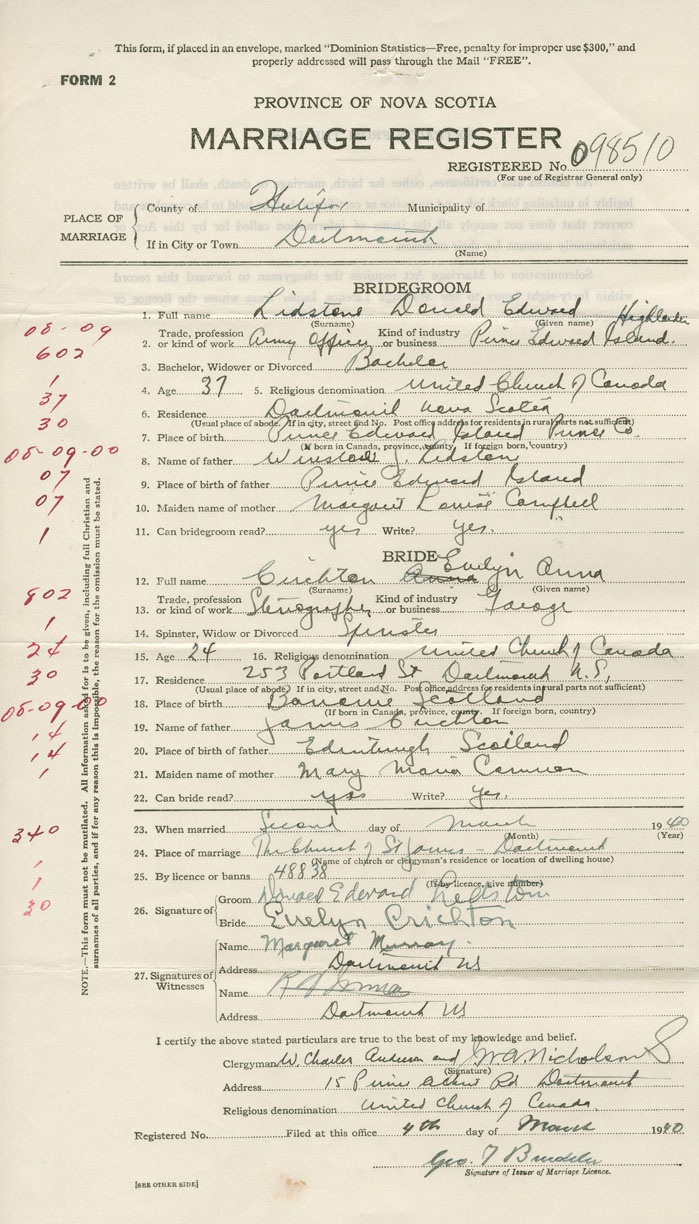 This form, if placed in an envelope, marked "Dominion Statistics—Free, penalty for improper use $300," and
properly addressed will pass through the Mail "FREE".
FORM 2
PROVINCE OF NOVA SCOTIA
MARRIAGE REGISTER
REGISTERED No. 098510
(For use of Registrar General only)
PLACE OF MARRIAGE
County of Halifax Municipality of
If in City or Town Dartmouth
(Name)
BRIDEGROOM
1. Full name Lidstone Donald Edward
(Surname) (Given name)
Highlander
2. Trade, profession or kind of work Army Officer Kind of industry or business Prince Edward Island.
3. Bachelor, Widower or Divorced Bachelor
4. Age 37 5. Religious denomination United Church of Canada
6. Residence Dartmouth Nova Scotia
(Usual place of abode. If in city, street and No. Post office address for residents in rural parts not sufficient)
7. Place of birth Prince Edward Island Prince Co.
(If born in Canada, province, county. If foreign born, country)
8. Name of father Winston J. Lidstone
9. Place of birth of father Prince Edward Island
10. Maiden name of mother Margaret Louise Campbell
11. Can bridegroom read? yes Write? yes.
BRIDE
12. Full name Crichton Anna Evelyn Anna
(Surname) (Given name)
13. Trade, profession or kind of work Stenographer Kind of industry or business Garage
14. Spinster, Widow or Divorced Spinster
15. Age 24 16. Religious denomination United Church of Canada
17. Residence 253 Portland St Dartmouth N.S,
(Usual place of abode. If in city, street and No. Post office address for residents in rural parts not sufficient)
18. Place of birth Scotland
(If born in Canada, province, county. If foreign born, country)
19. Name of father James Crichton
20. Place of birth of father Edinburgh Scotland
21. Maiden name of mother Mary Maria
22. Can bride read? yes Write? yes.
23. When married Second day of March 1940
(Month) (Year)
24. Place of marriage The Church of St James - Dartmouth
(Name of church or clergyman's residence or location of dwelling house)
25. By licence or banns 48838
(If by licence, give number)
26. Signature of
Groom Donald Edward Lidstone
Bride Evelyn Crichton
27. Signatures of Witnesses
Name Margaret Murray.
Address Dartmouth NS
Name
Address Dartmouth NS
I certify the above stated particulars are true to the best of my knowledge and belief.
Clergyman W. Charles Anderson and Nicholson
(Signature)
Address 15 Prince Albert Rd Dartmouth
Religious denomination United Church of Canada.
Registered No. Filed at this office 4th day of March 1940
Geo. T
Signature of Issuer of Marriage Licence.
[SEE OTHER SIDE]
NOTE.—This form must not be mutilated. All information asked for is to be given, including full Christian and
surnames of all parties, and if for any reason this is impossible, the reason for the omission must be stated.
08-09
602
1
37
30
05-09-00
07
07
1
802
1
24
30
05-09-00
14
14
1
340
1
1
30